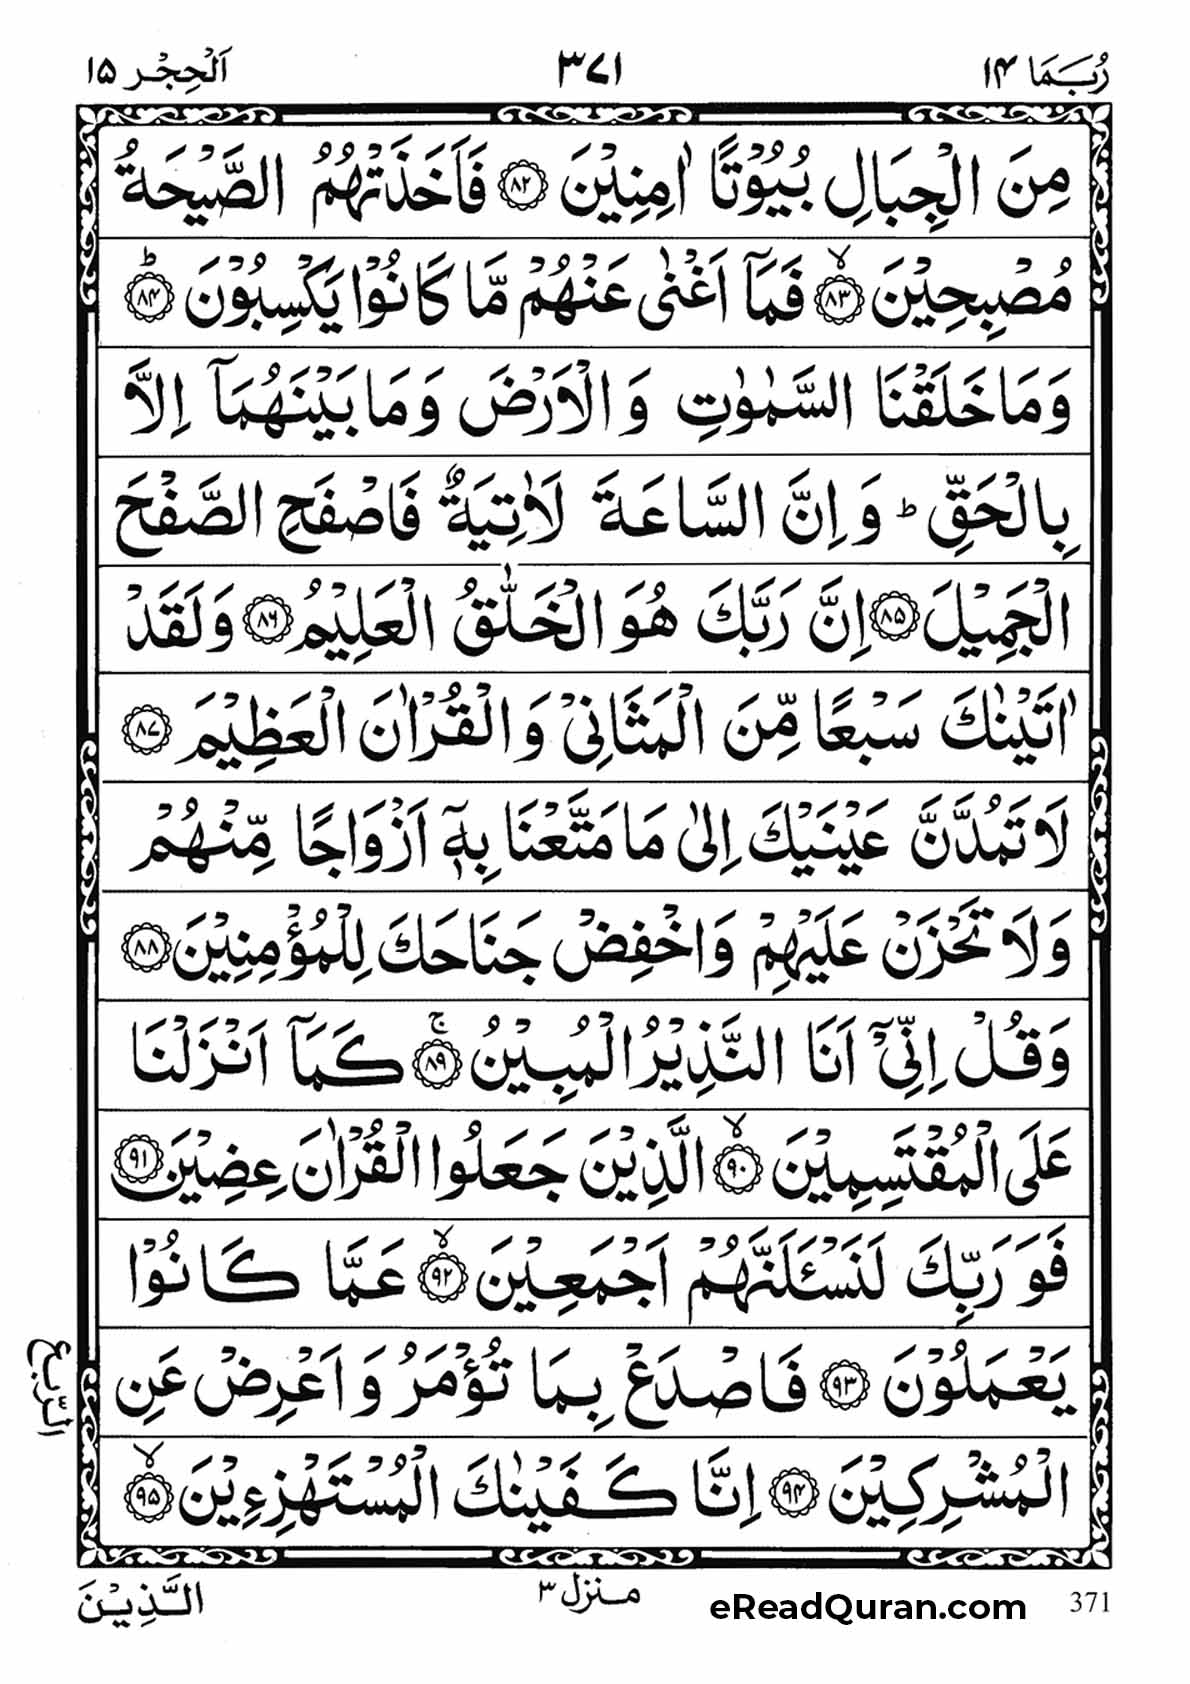 رُبَمَا ۱۴
۳۷۱
اَلْحِجْر ۱۵
مِنَ الْجِبَالِ بُيُوْتًا اٰمِنِيْنَ ﴿۸۲﴾ فَاَخَذَتْهُمُ الصَّيْحَةُ
مُصْبِحِيْنَ ﴿۸۳﴾ۙ فَمَاۤ اَغْنٰى عَنْهُمْ مَّا كَانُوْا يَكْسِبُوْنَ ﴿۸۴﴾ؕ
وَمَا خَلَقْنَا السَّمٰوٰتِ وَالْاَرْضَ وَمَا بَيْنَهُمَاۤ اِلَّا
بِالْحَقِّ ؕ وَاِنَّ السَّاعَةَ لَاٰتِيَةٌ فَاصْفَحِ الصَّفْحَ
الْجَمِيْلَ ﴿۸۵﴾ اِنَّ رَبَّكَ هُوَ الْخَلّٰقُ الْعَلِيْمُ ﴿۸۶﴾ وَلَقَدْ
اٰتَيْنٰكَ سَبْعًا مِّنَ الْمَثَانِيْ وَالْقُرْاٰنَ الْعَظِيْمَ ﴿۸۷﴾
لَا تَمُدَّنَّ عَيْنَيْكَ اِلٰى مَا مَتَّعْنَا بِهٖۤ اَزْوَاجًا مِّنْهُمْ
وَلَا تَحْزَنْ عَلَيْهِمْ وَاخْفِضْ جَنَاحَكَ لِلْمُؤْمِنِيْنَ ﴿۸۸﴾
وَقُلْ اِنِّيْۤ اَنَا النَّذِيْرُ الْمُبِيْنُ ﴿۸۹﴾ۚ كَمَاۤ اَنْزَلْنَا
عَلَى الْمُقْتَسِمِيْنَ ﴿۹۰﴾ۙ الَّذِيْنَ جَعَلُوا الْقُرْاٰنَ عِضِيْنَ ﴿۹۱﴾
فَوَرَبِّكَ لَنَسْـَٔلَنَّهُمْ اَجْمَعِيْنَ ﴿۹۲﴾ۙ عَمَّا كَانُوْا
يَعْمَلُوْنَ ﴿۹۳﴾ فَاصْدَعْ بِمَا تُؤْمَرُ وَاَعْرِضْ عَنِ
الْمُشْرِكِيْنَ ﴿۹۴﴾ اِنَّا كَفَيْنٰكَ الْمُسْتَهْزِءِيْنَ ﴿۹۵﴾ۙ
الرّبع
371
eReadQuran.com
منزل ۳
الَّذِيْنَ